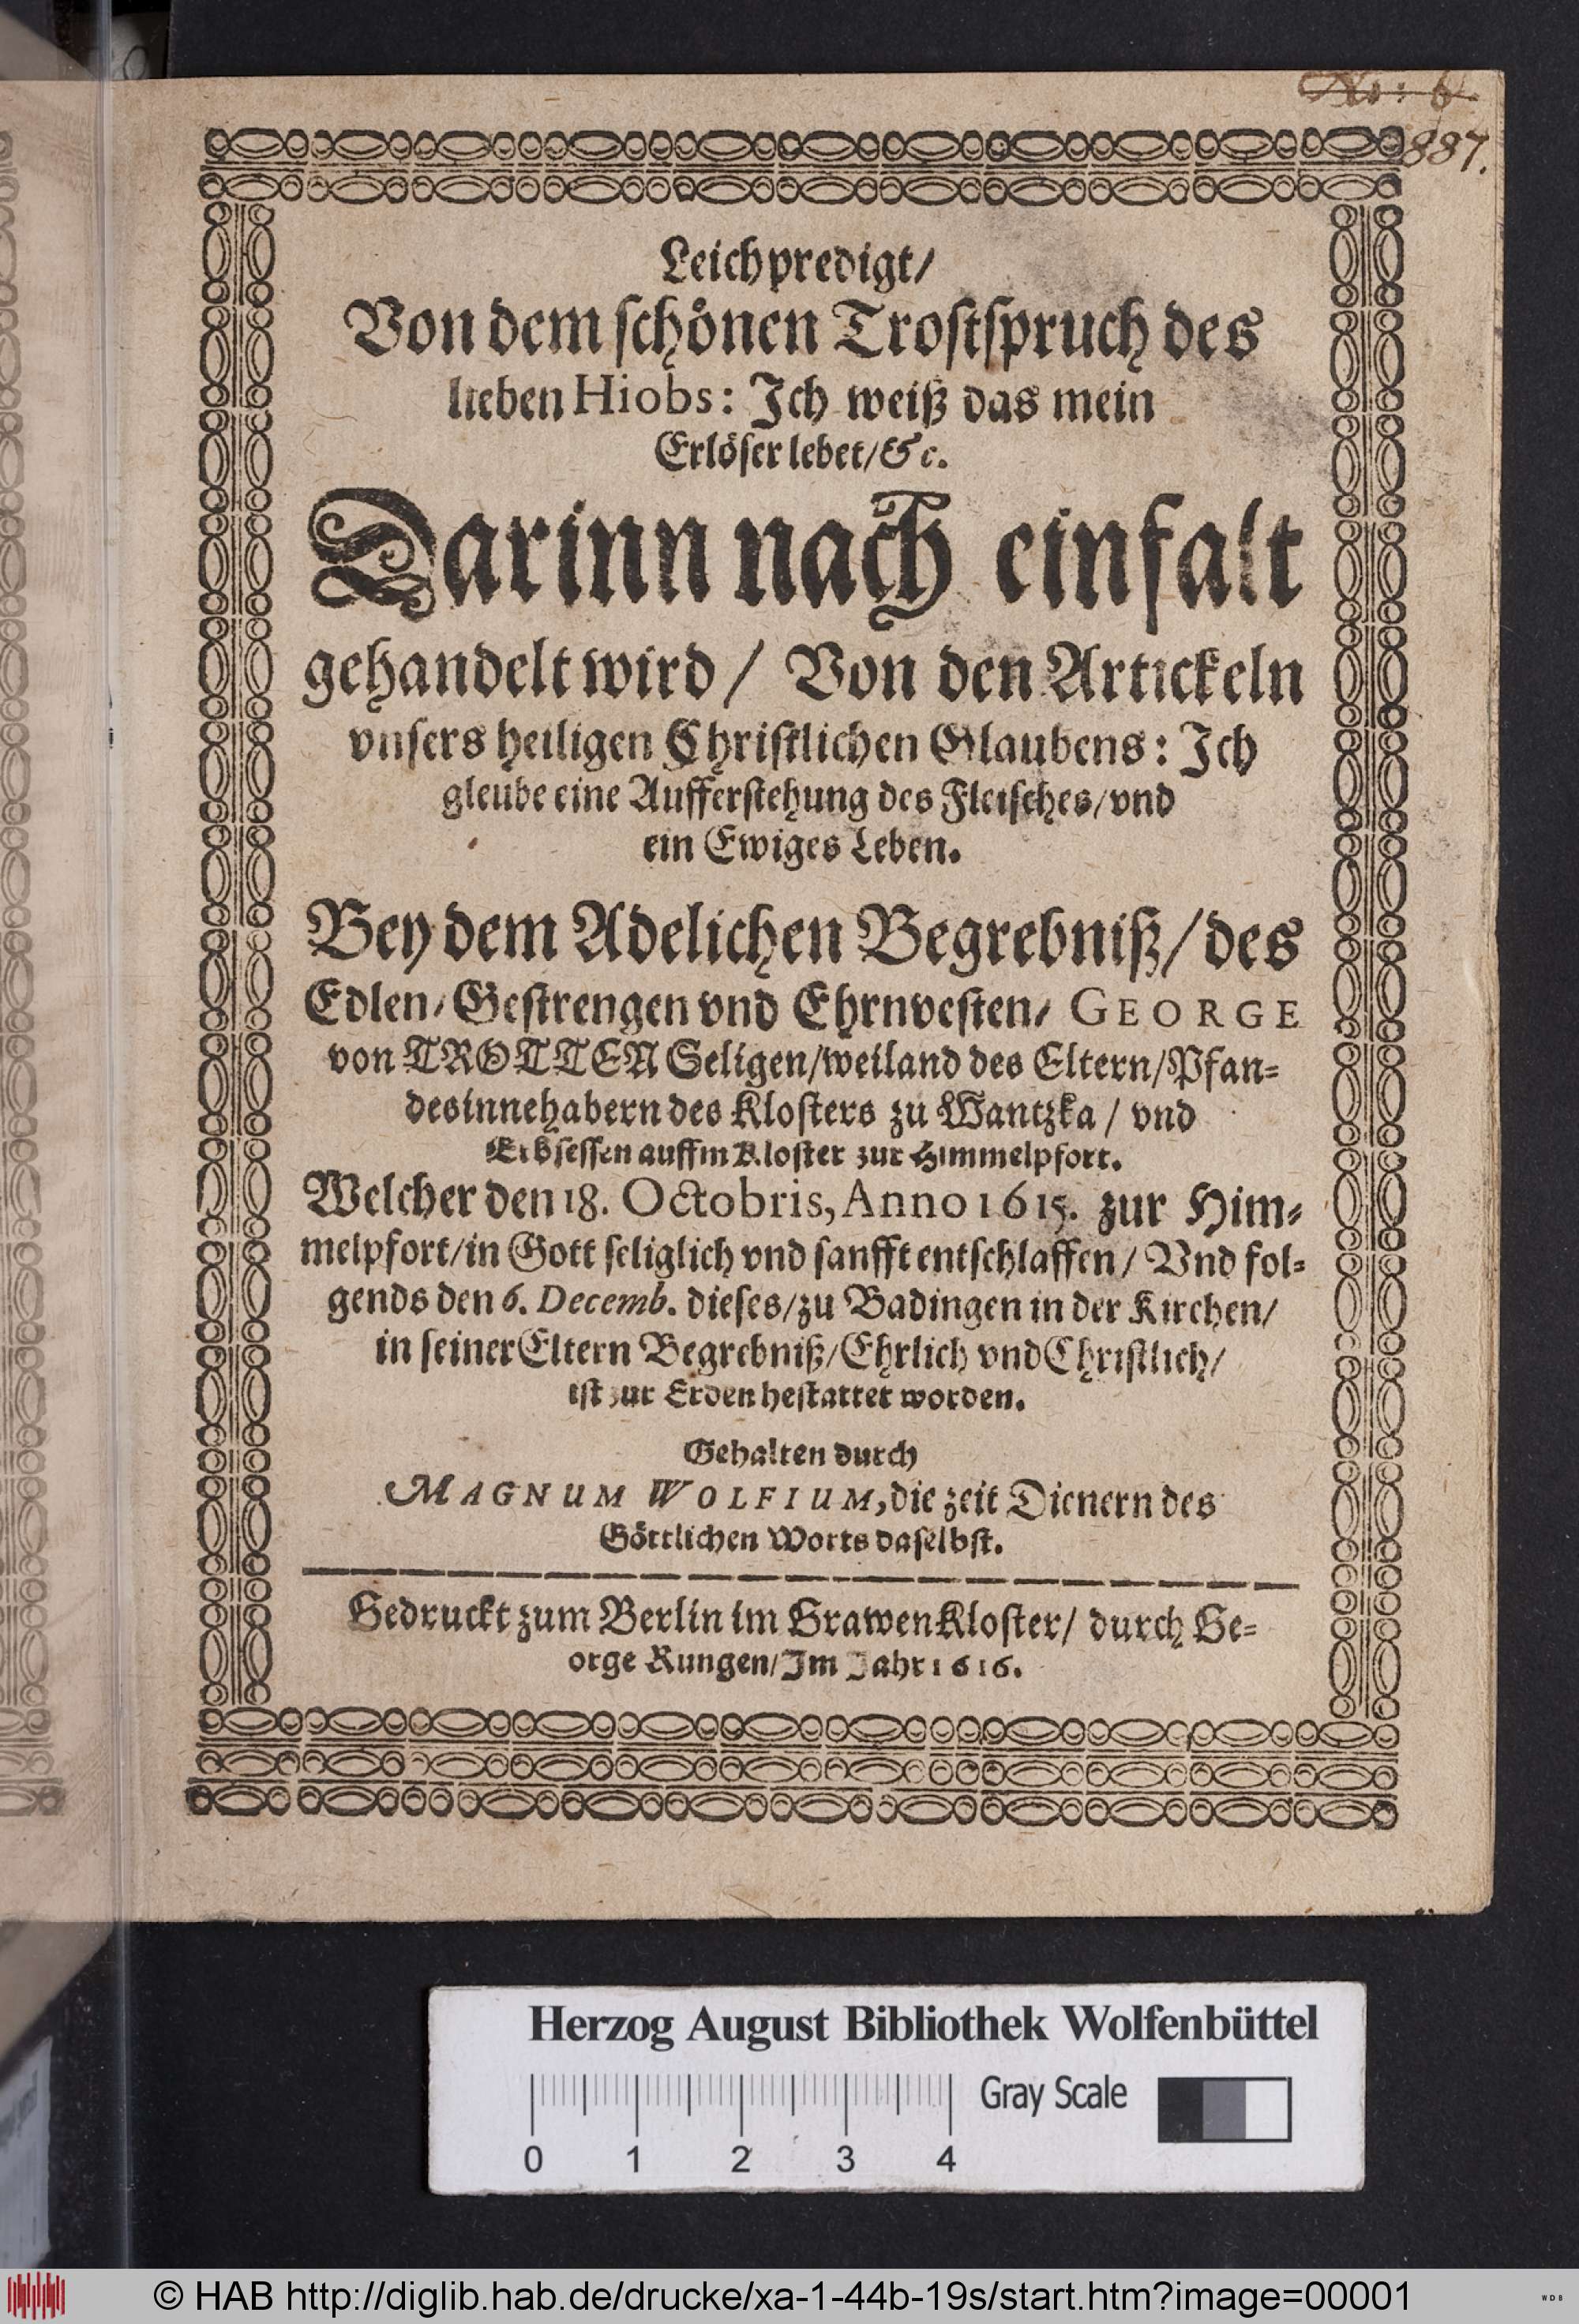 No: 6.
887.
Leichpredigt/
Von dem schönen Trostspruch des
lieben Hiobs: Ich weiß das mein
Erlöser lebet/&c.
Darinn nach einfalt
gehandelt wird / Von den Artickeln
vnsers heiligen Christlichen Glaubens: Ich
gleube eine Aufferstehung des Fleisches/vnd
ein Ewiges Leben.
Bey dem Adelichen Begrebniß/des
Edlen/Gestrengen vnd Ehrnvesten/ GEORGE
von TROTTEN Seligen/weiland des Eltern/Pfan=
desinnehabern des Klosters zu Wantzka / vnd
Erbsessen auffm Kloster zur Himmelpfort.
Welcher den 18. Octobris, Anno 1615. zur Him=
melpfort/in Gott seliglich vnd sanfft entschlaffen/ Vnd fol=
gends den 6. Decemb. dieses/zu Badingen in der Kirchen/
in seiner Eltern Begrebniß/Ehrlich vnd Christlich/
ist zur Erden bestattet worden.
Gehalten durch
MAGNUM WOLFIUM, die zeit Dienern des
Göttlichen Worts daselbst.
Gedruckt zum Berlin im Grawen Kloster/ durch Ge=
orge Rungen/Im Jahr 1616.
Herzog August Bibliothek Wolfenbüttel
Gray Scale
0 1 2 3 4
© HAB http://diglib.hab.de/drucke/xa-1-44b-19s/start.htm?image=00001
WDB